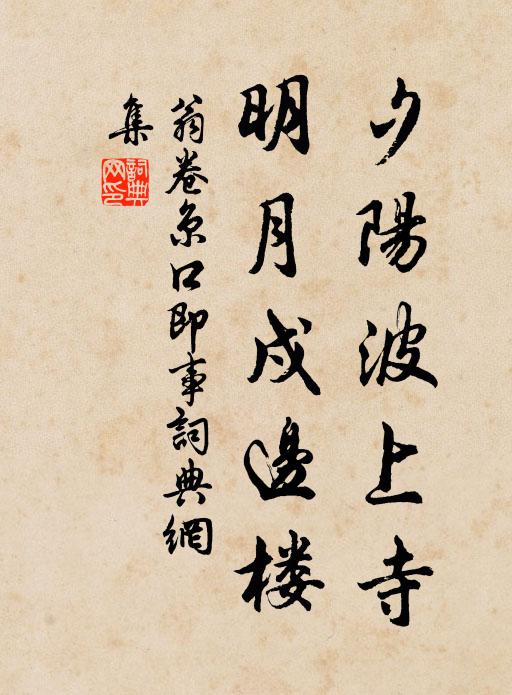 夕陽波上寺
明月戍邊楼
翁卷京口即事詞典網
集
詞典网印